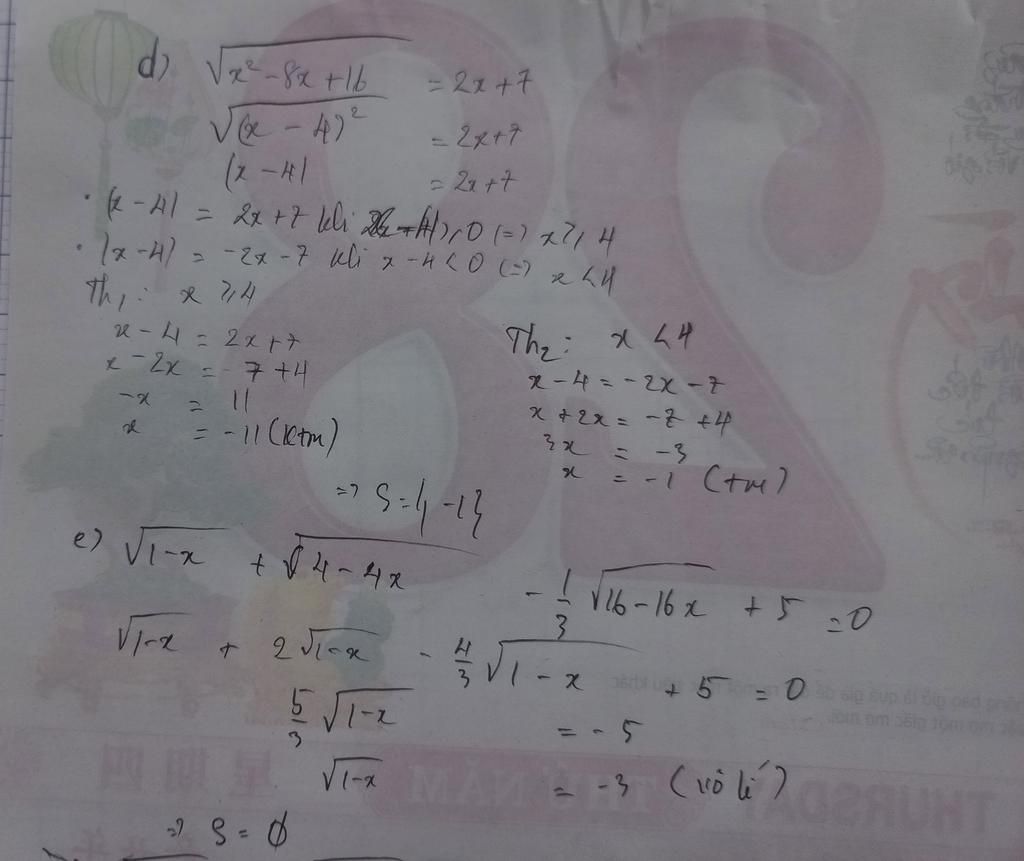 d) √(x² - 8x + 16) = 2x + 7
√((x - 4)²) = 2x + 7
|x - 4| = 2x + 7
• |x - 4| = 2x + 7 khi ≥ 0 (=) x ≥ 4
• |x - 4| = -2x - 7 khi x - 4 < 0 (=) x < 4
Th₁: x ≥ 4
x - 4 = 2x + 7
x - 2x = 7 + 4
-x = 11
x = -11 (ktm)
Th₂: x < 4
x - 4 = -2x - 7
x + 2x = -7 + 4
3x = -3
x = -1 (tm)
=> S = { -1 }
e) √(1 - x) + √(4 - 4x) - 1/3 √(16 - 16x) + 5 = 0
√(1 - x) + 2√(1 - x) - 4/3 √(1 - x) + 5 = 0
5/3 √(1 - x) = - 5
√(1 - x) = -3 (vô lí)
=> S = ∅
THURSDAY THỨ NĂM 星期四